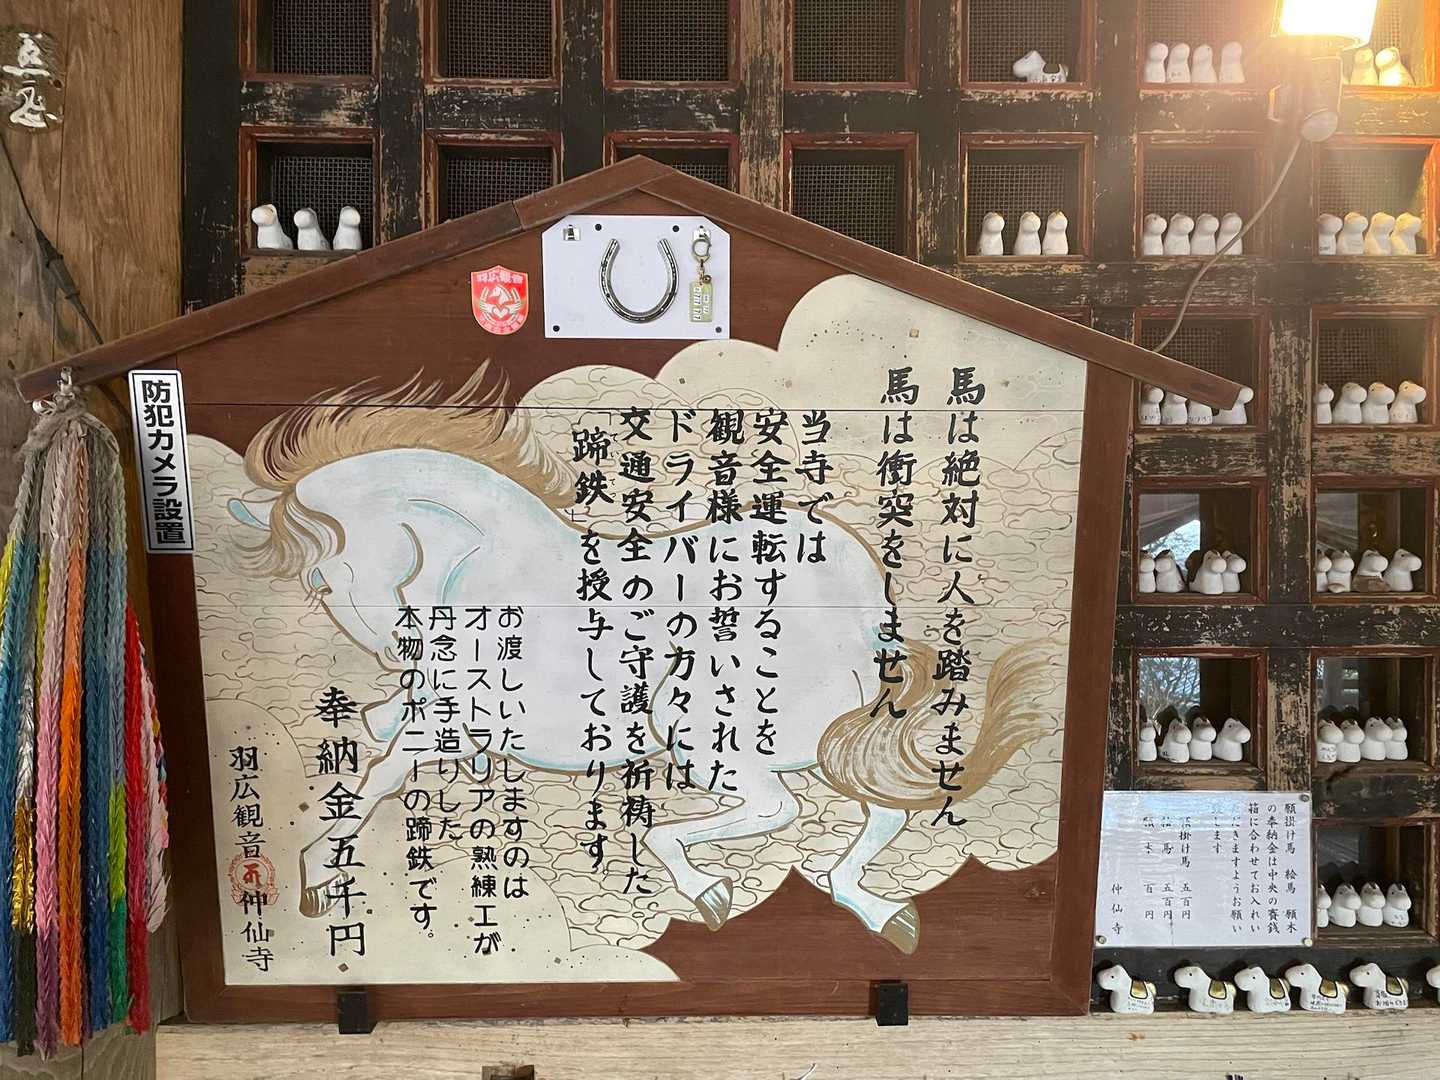 馬は絶対に人を踏みません
馬は衝突をしません
当寺では
安全運転することを
観音様にお誓いされた
ドライバーの方々には
交通安全のご守護を祈祷した
「蹄鉄」を授与しております。
お渡しいたしますのは
オーストラリアの熟練工が
丹念に手造りした
本物のポニーの蹄鉄です。
奉納金五千円
羽広観音 仲仙寺
防犯カメラ設置
羽広観音
願掛け馬 絵馬 願木
の奉納金は中央の賽銭
箱に合わせてお入れい
ただきますようお願い
します
願掛け馬 五百円
絵馬 五百円
願木 百円
仲仙寺